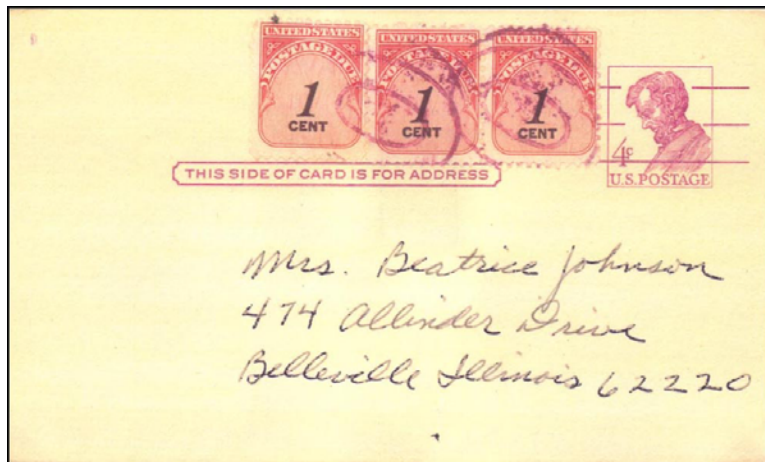 UNITED STATES UNITED STATES UNITED STATES
POSTAGE DUE POSTAGE DUE POSTAGE DUE
1 1 1
CENT CENT CENT
4c
U.S. POSTAGE
THIS SIDE OF CARD IS FOR ADDRESS
Mrs. Beatrice Johnson
474 Allinder Drive
Belleville Illinois 62220